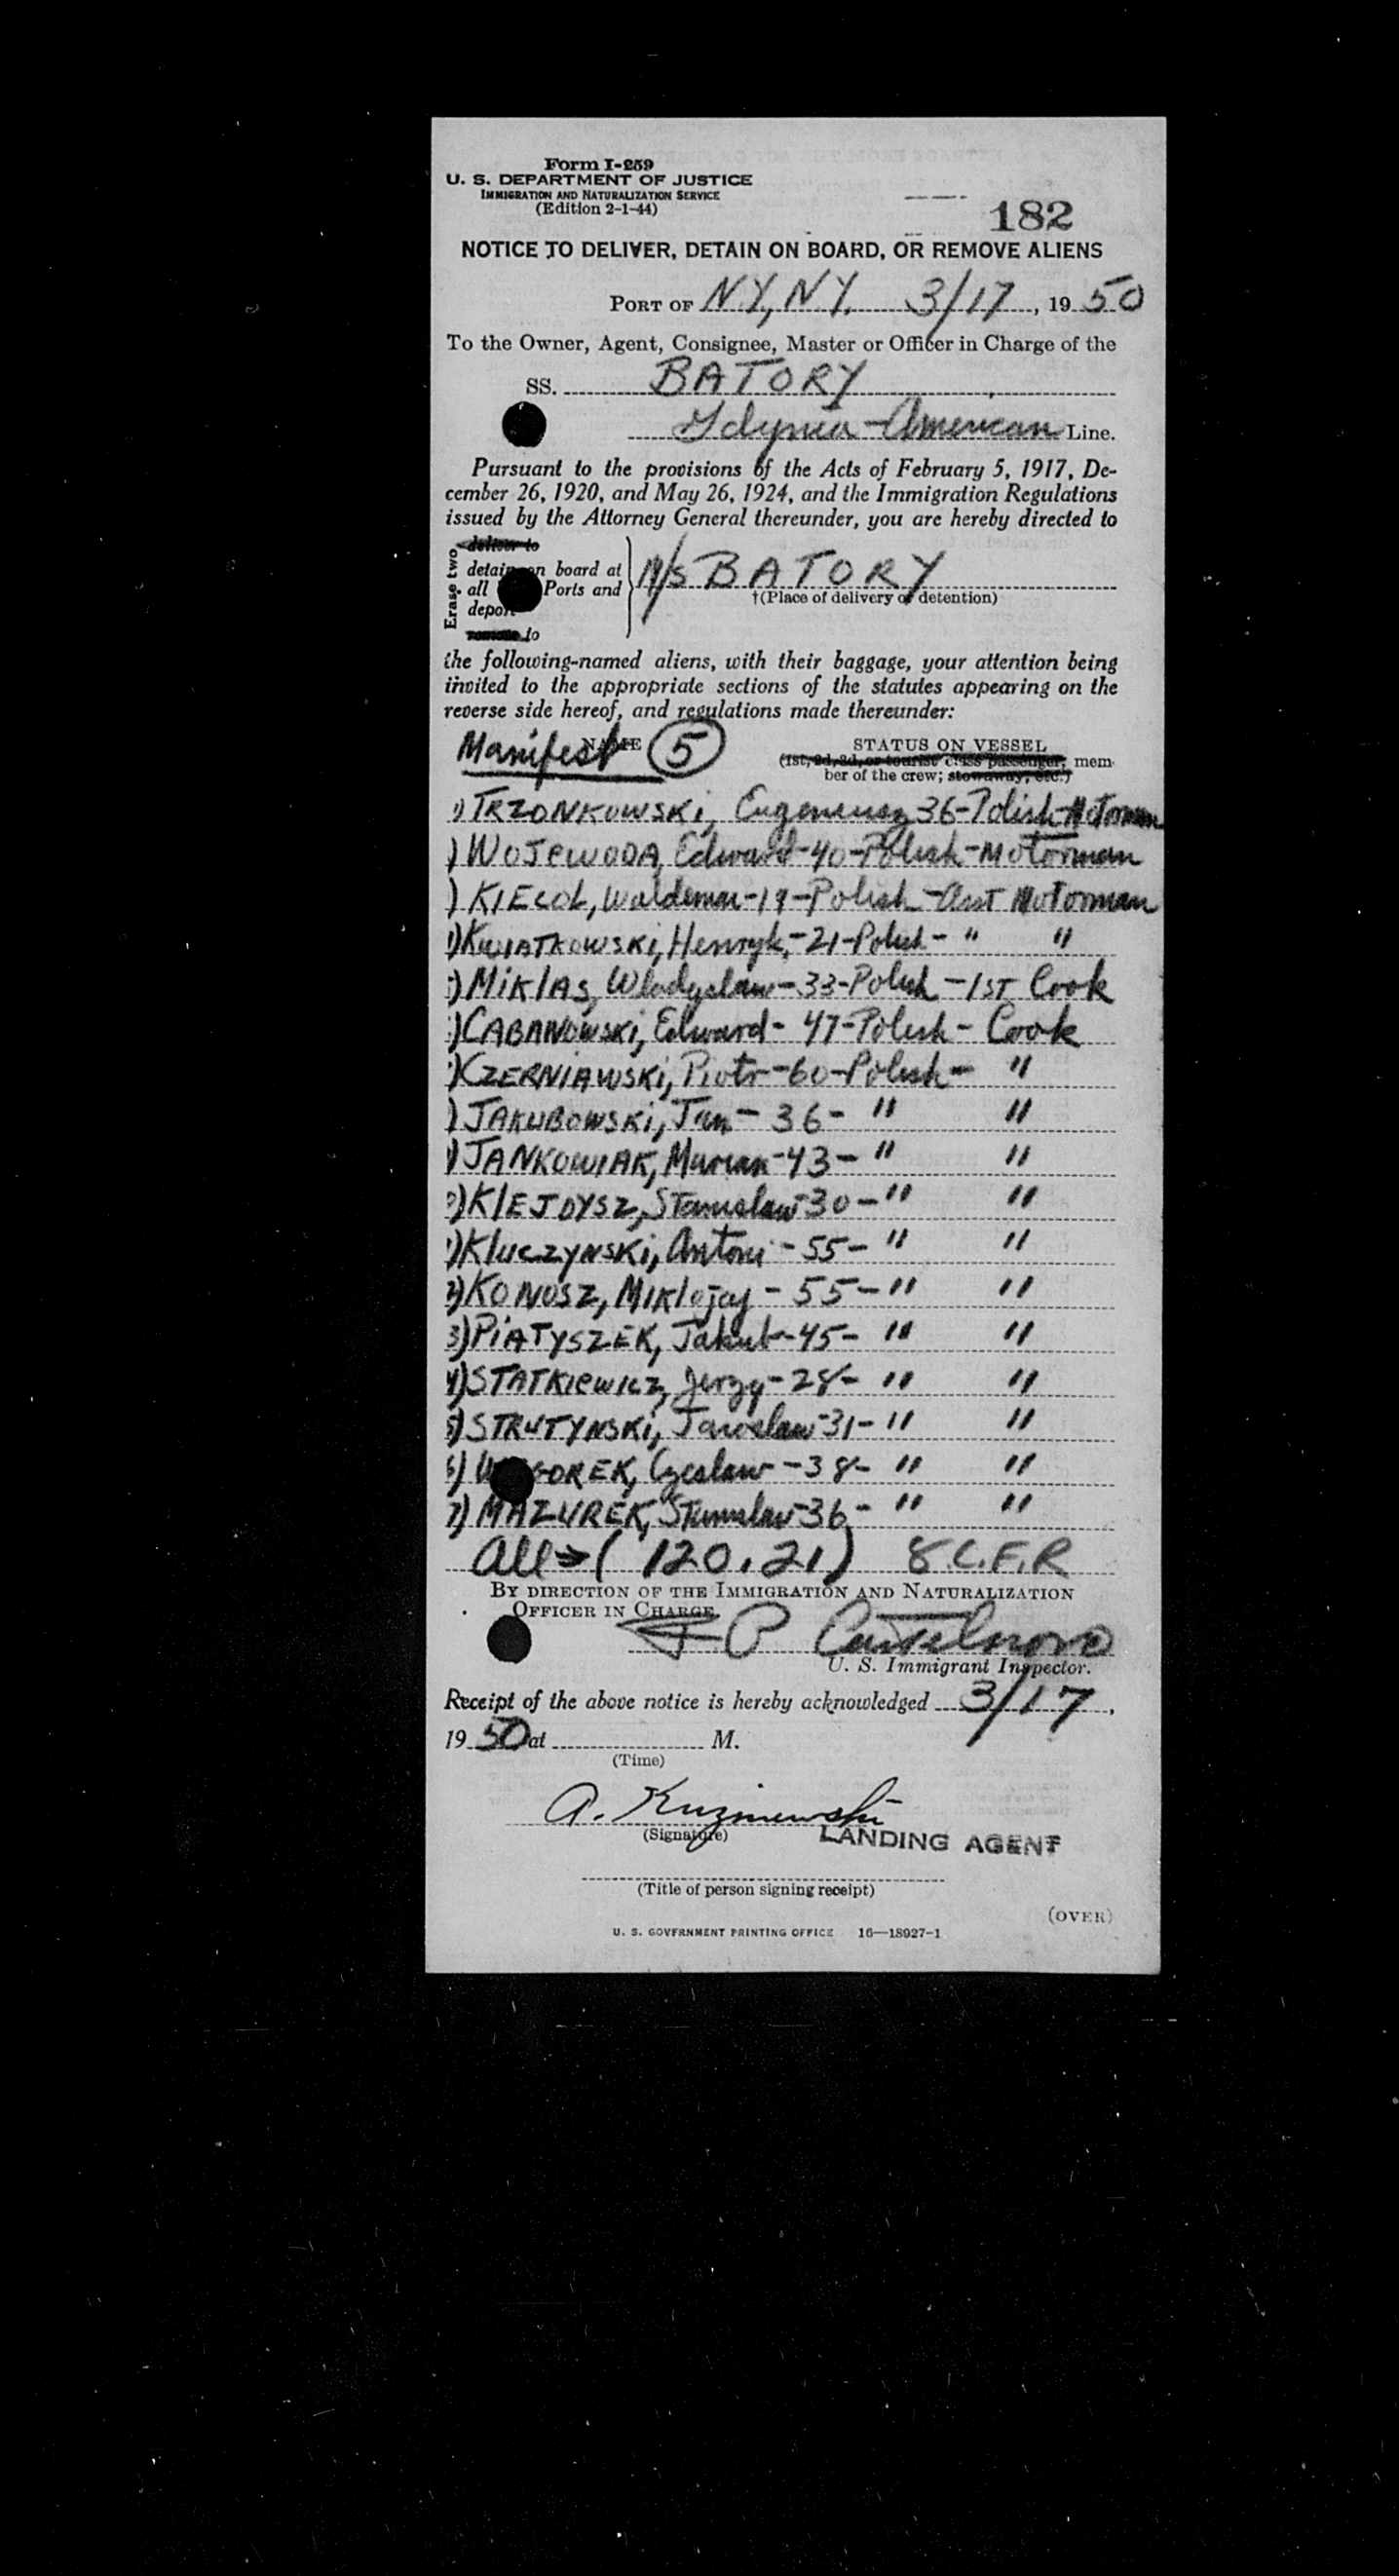 Form I-259
U. S. DEPARTMENT OF JUSTICE
IMMIGRATION AND NATURALIZATION SERVICE
(Edition 2-1-44)
182
NOTICE TO DELIVER, DETAIN ON BOARD, OR REMOVE ALIENS
PORT OF N.Y., N.Y. 3/17, 1950
To the Owner, Agent, Consignee, Master or Officer in Charge of the
SS. BATORY
Gdynia-American Line.
Pursuant to the provisions of the Acts of February 5, 1917, De-
cember 26, 1920, and May 26, 1924, and the Immigration Regulations
issued by the Attorney General thereunder, you are hereby directed to
Erase two
deliver to
detain on board at
all Ports and
deport
remove to
M/S BATORY
†(Place of delivery or detention)
the following-named aliens, with their baggage, your attention being
invited to the appropriate sections of the statutes appearing on the
reverse side hereof, and regulations made thereunder:
NAME
Manifest 5
STATUS ON VESSEL
(1st, 2d, 3d, or tourist class passenger; mem-
ber of the crew; stowaway, etc.)
1) TRZONKOWSKI, Eugeneusz 36-Polish-Motorman
) WOJEWODA, Edward-40-Polish-Motorman
) KIECOL, Waldemar-19-Polish-Asst Motorman
) KWIATKOWSKI, Henryk,-21-Polish- " "
) MIKLAS, Wladyslaw-33-Polish-1ST Cook
) CABANOWSKI, Edward-47-Polish-Cook
) CZERNIAWSKI, Piotr-60-Polish- "
) JAKUBOWSKI, Jan-36- " "
) JANKOWIAK, Marian-43- " "
) KLEJDYSZ, Stanislaw-30- " "
) KLUCZYNSKI, Antoni-55- " "
2) KONOSZ, MIKlojaj-55- " "
3) PIATYSZEK, Jakub-45- " "
4) STATKIEWICZ, Jerzy-28- " "
5) STRUTYNSKI, Jaroslaw-31- " "
6) GOREK, Czeslaw-38- " "
7) MAZUREK, Stanislaw-36- " "
All → (120.21) 8 C.F.R
BY DIRECTION OF THE IMMIGRATION AND NATURALIZATION
OFFICER IN CHARGE
P Castelnovo
U. S. Immigrant Inspector.
Receipt of the above notice is hereby acknowledged 3/17,
1950 at M.
(Time)
A. Kuzniewski
(Signature)
LANDING AGENT
(Title of person signing receipt)
(OVER)
U. S. GOVERNMENT PRINTING OFFICE 16—18927-1